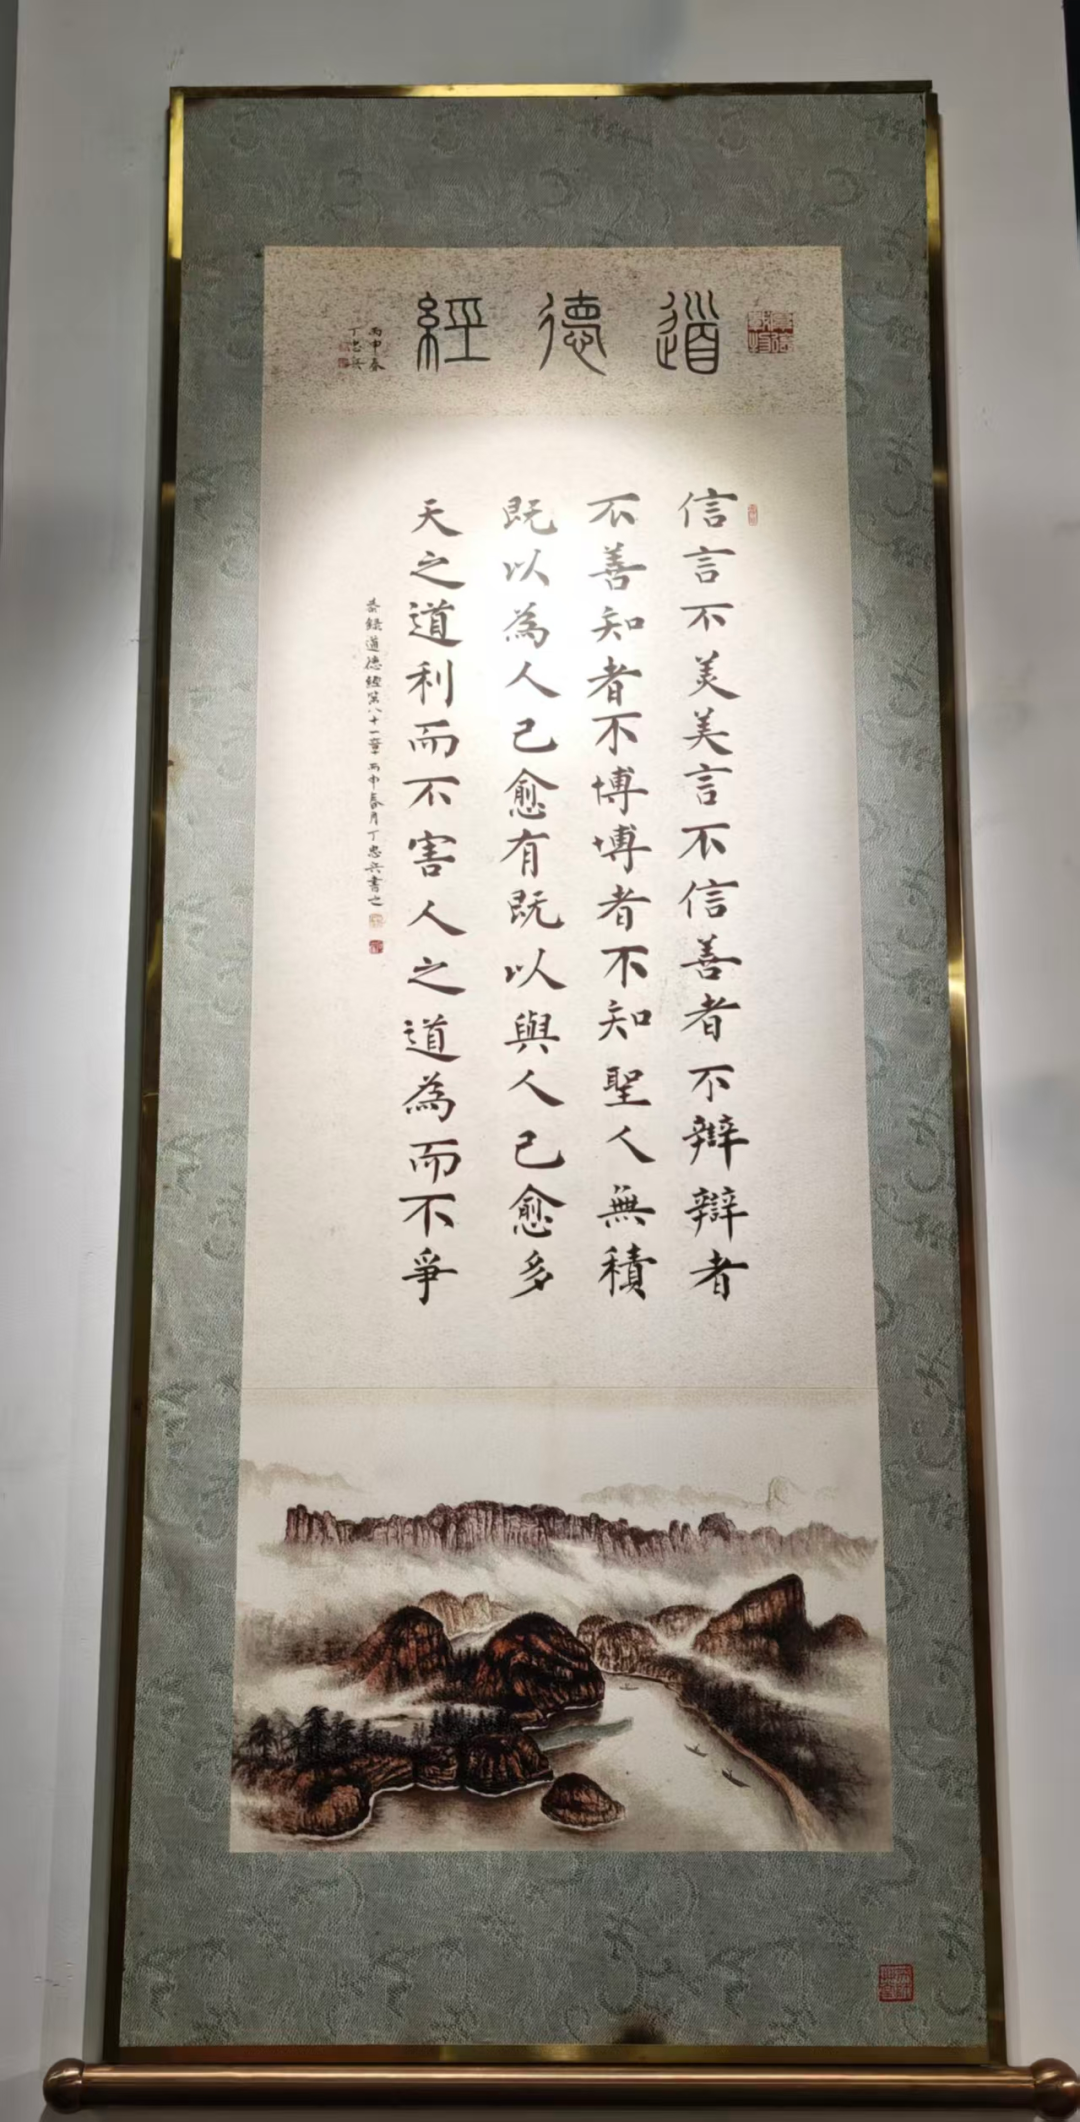 道德經
丙申春
丁忠兵
信言不美美言不信善者不辯辯者
不善知者不博博者不知聖人無積
既以為人己愈有既以與人己愈多
天之道利而不害人之道為而不爭
恭錄道德經第八十一章丙申春月丁忠兵書之